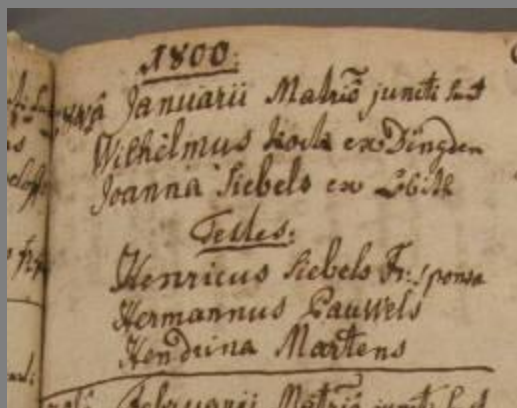 1800:
Januarii Matriō juncti sunt
Wilhelmus Kock ex Dingden
Joanna Siebels ex Lobith
Testes:
Henricus Siebels Fr: sponsa
Hermannus Pauwels
Hendrina Martens
Februarii Matriō juncti sunt